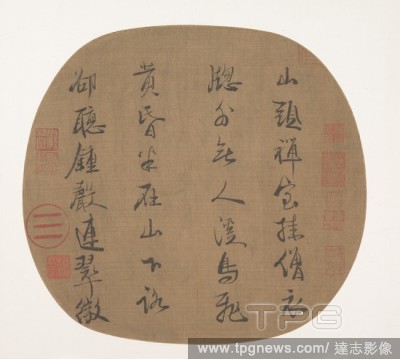 山頭禪室挂僧衣
牕外無人溪鳥飛
黃昏半在山下路
却聽鍾聲連翠微
TPG
www.tpgnews.com / 達志影像